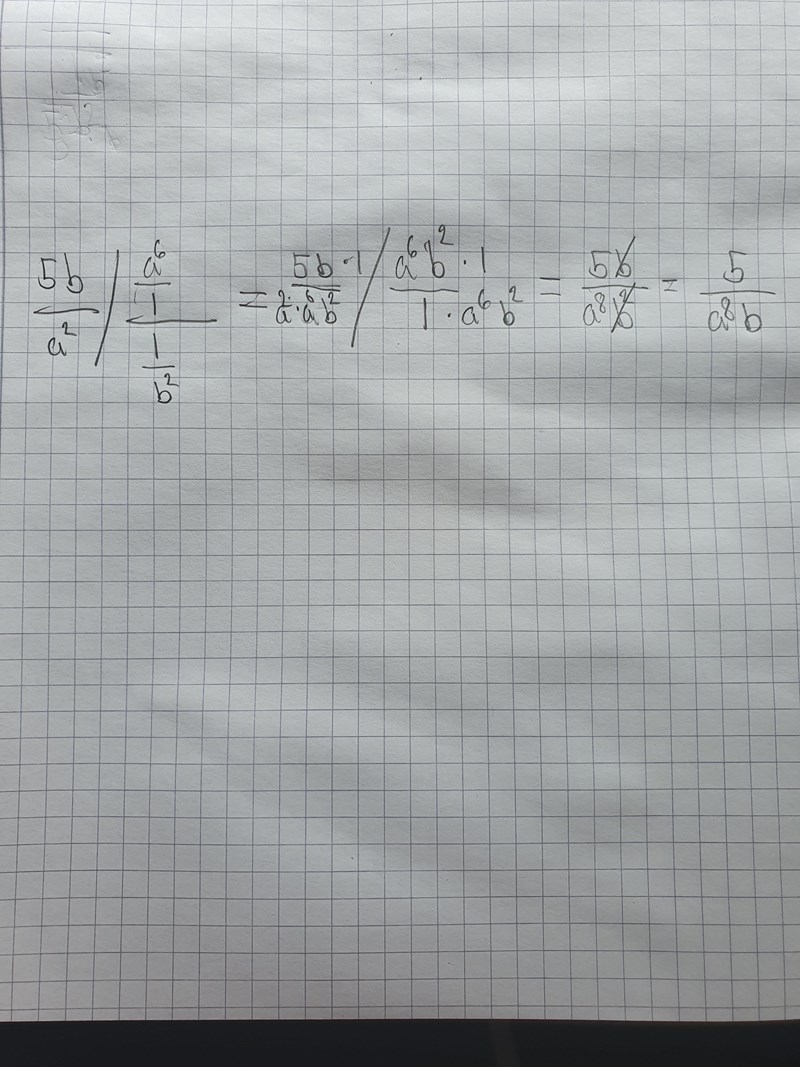 5b/a² / (a⁶/1)/(1/b²) = 5b·1/a²·a⁶b² / a⁶b²·1/1·a⁶b² = 5b/a⁸b² = 5/a⁸b